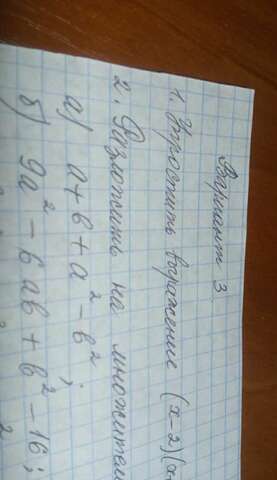 Вариант 3
1. Упростить выражение (x-2)(x
2. Разложить на множители
а) a+b+a²-b²;
б) 9a²-6ab+b²-16;